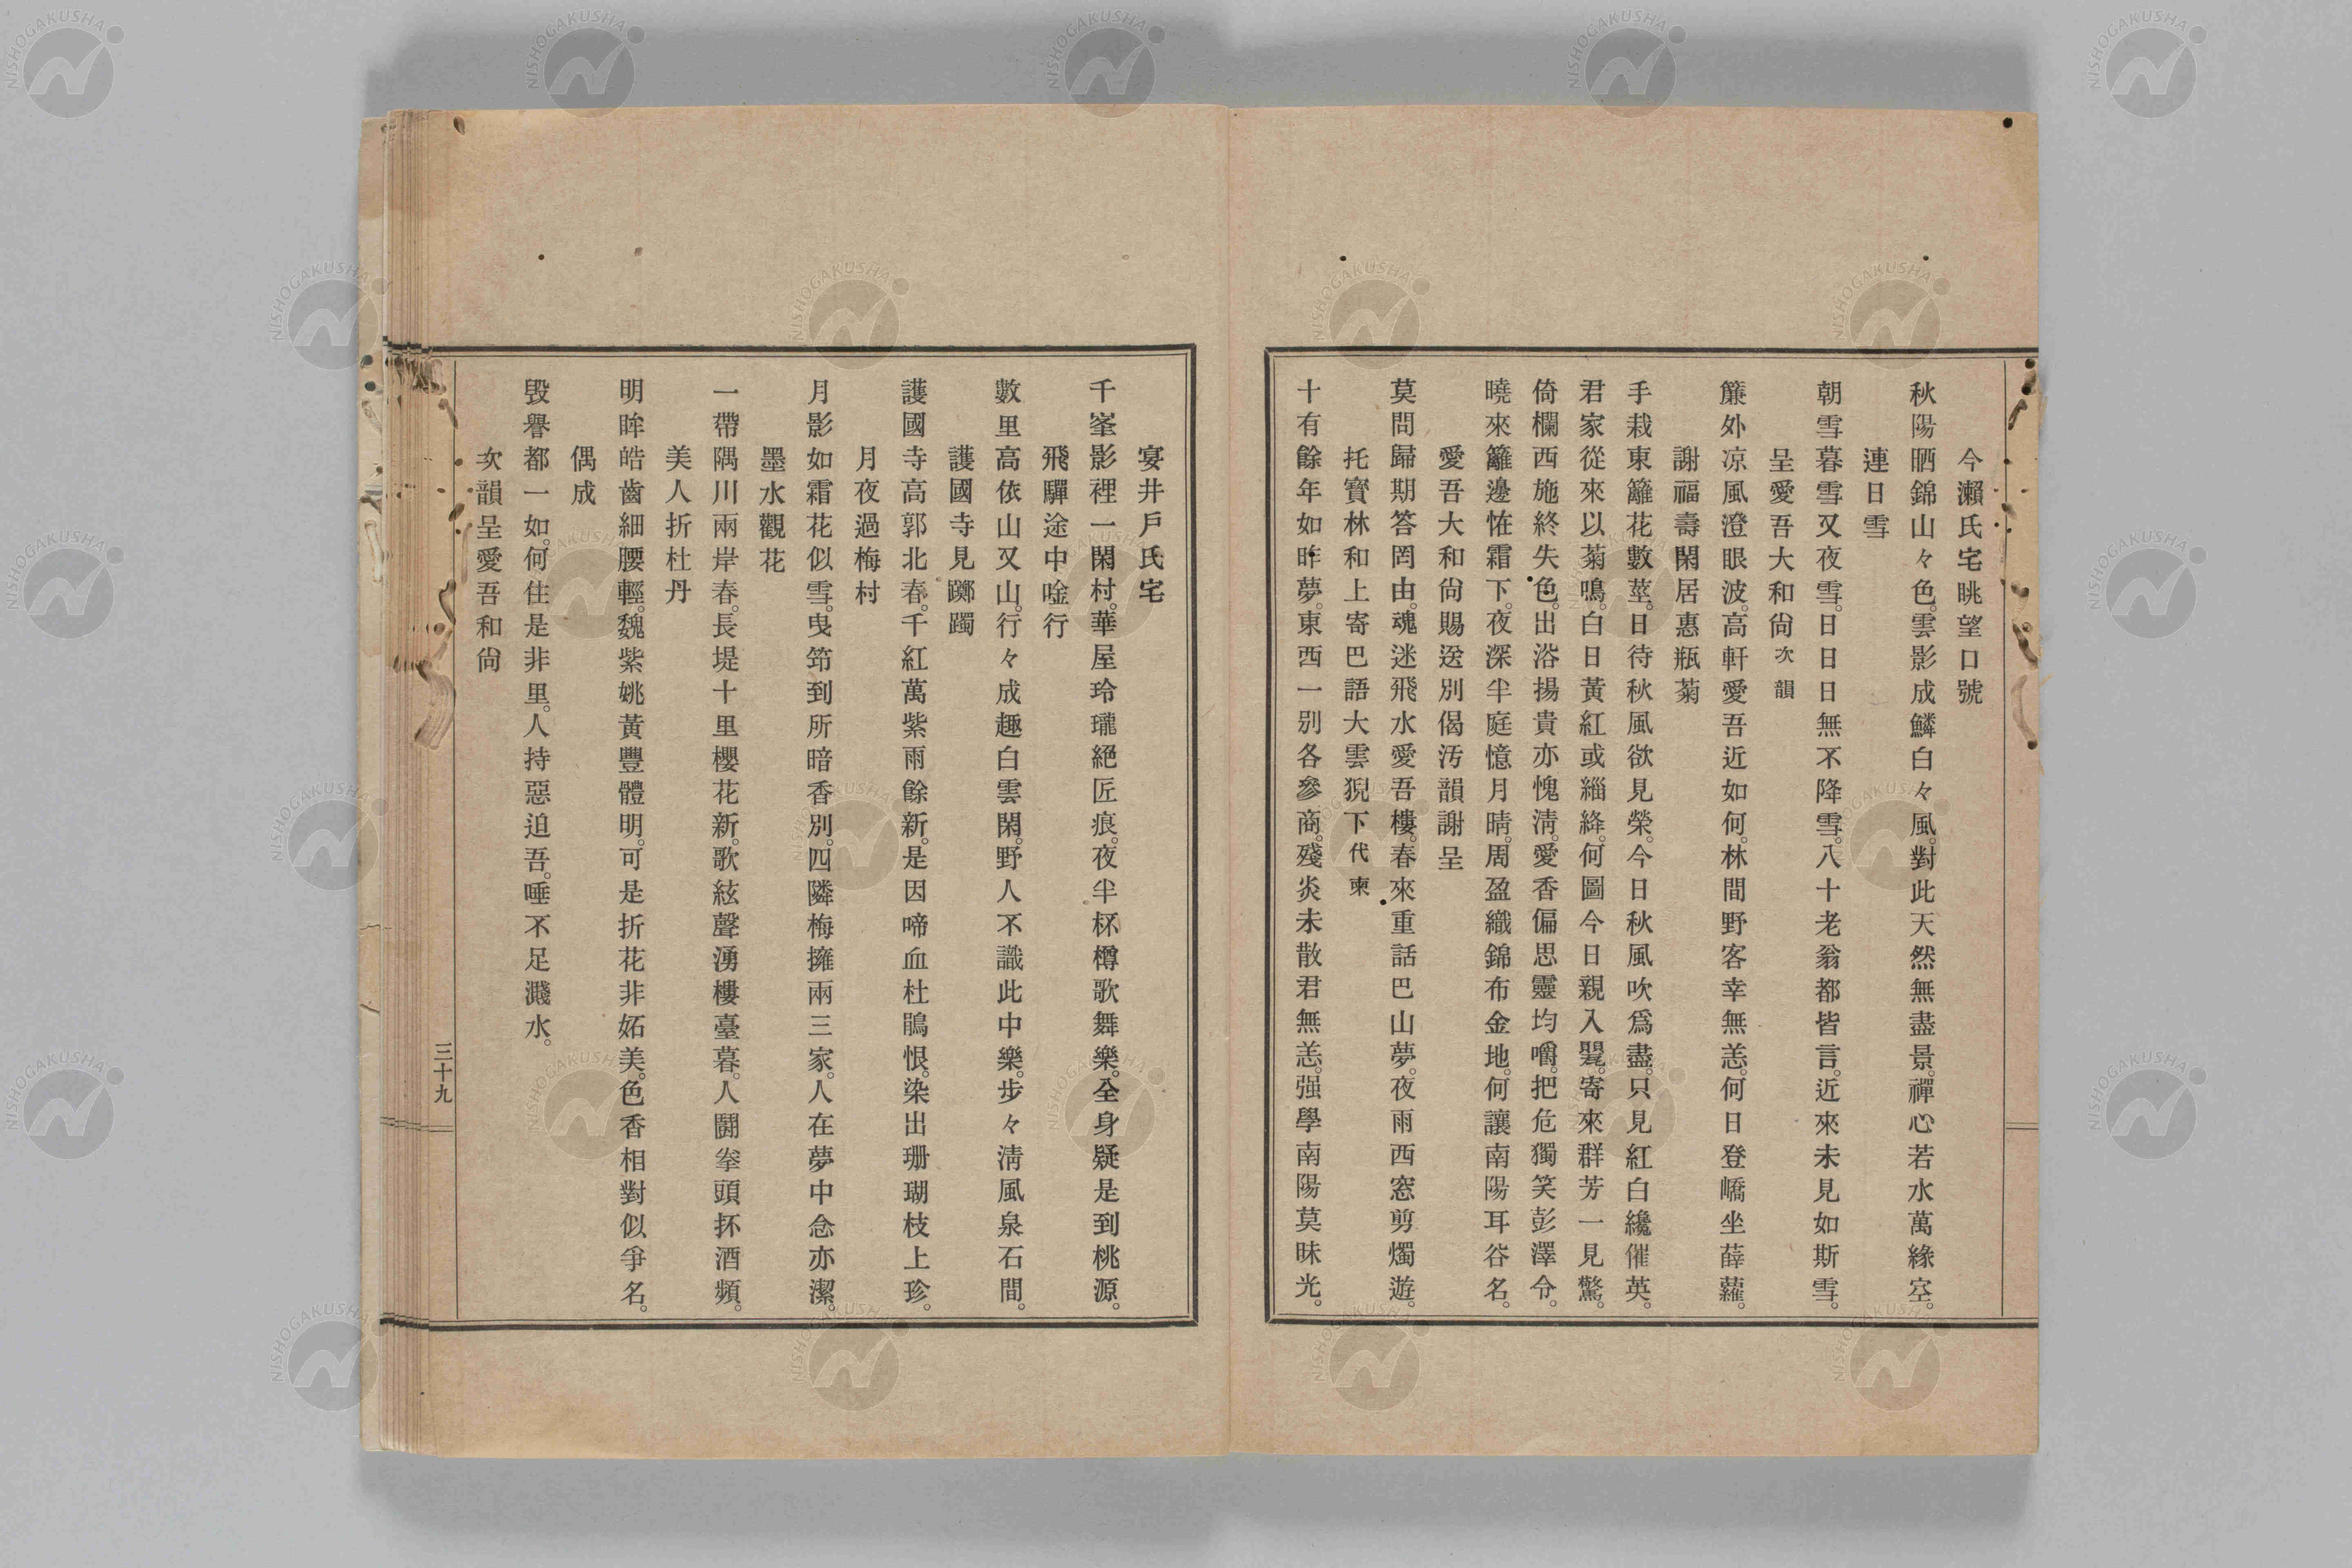 今瀨氏宅眺望口號
秋陽晒錦山々色。雲影成鱗白々風。對此天然無盡景。禪心若水萬緣空。
連日雪
朝雪暮雪又夜雪。日日日無不降雪。八十老翁都皆言。近來未見如斯雪。
呈愛吾大和尙次韻
簾外凉風澄眼波。高軒愛吾近如何。林間野客幸無恙。何日登嶠坐薜蘿。
謝福壽閑居惠瓶菊
手栽東籬花數莖。日待秋風欲見榮。今日秋風吹爲盡。只見紅白纔催英。
君家從來以菊鳴。白日黃紅或緇絳。何圖今日親入翫。寄來群芳一見驚。
倚欄西施終失色。出浴揚貴亦愧淸。愛香偏思靈均嚼。把危獨笑彭澤令。
曉來籬邊恠霜下。夜深半庭憶月晴。周盈織錦布金地。何讓南陽耳谷名。
愛吾大和尙賜送別偈汚韻謝呈
莫問歸期答罔由。魂迷飛水愛吾樓。春來重話巴山夢。夜雨西窓剪燭遊。
托寳林和上寄巴語大雲猊下代柬
十有餘年如昨夢。東西一別各參商。殘炎未散君無恙。强學南陽莫昧光。
宴井戶氏宅
千峯影裡一閑村。華屋玲瓏絕匠痕。夜半杯樽歌舞樂。全身疑是到桃源。
飛驒途中唫行
數里高依山又山。行々成趣白雲閑。野人不識此中樂。步々淸風泉石間。
護國寺見躑躅
護國寺高郭北春。千紅萬紫雨餘新。是因啼血杜鵑恨。染出珊瑚枝上珍。
月夜過梅村
月影如霜花似雪。曳笻到所暗香別。四隣梅擁兩三家。人在夢中念亦潔。
墨水觀花
一帶隅川兩岸春。長堤十里櫻花新。歌絃聲湧樓臺暮。人鬪拳頭抔酒頻。
美人折杜丹
明眸皓齒細腰輕。魏紫姚黃豐體明。可是折花非妬美。色香相對似爭名。
偶成
毀譽都一如。何住是非里。人持惡迫吾。唾不足濺水。
次韻呈愛吾和尙
三十九